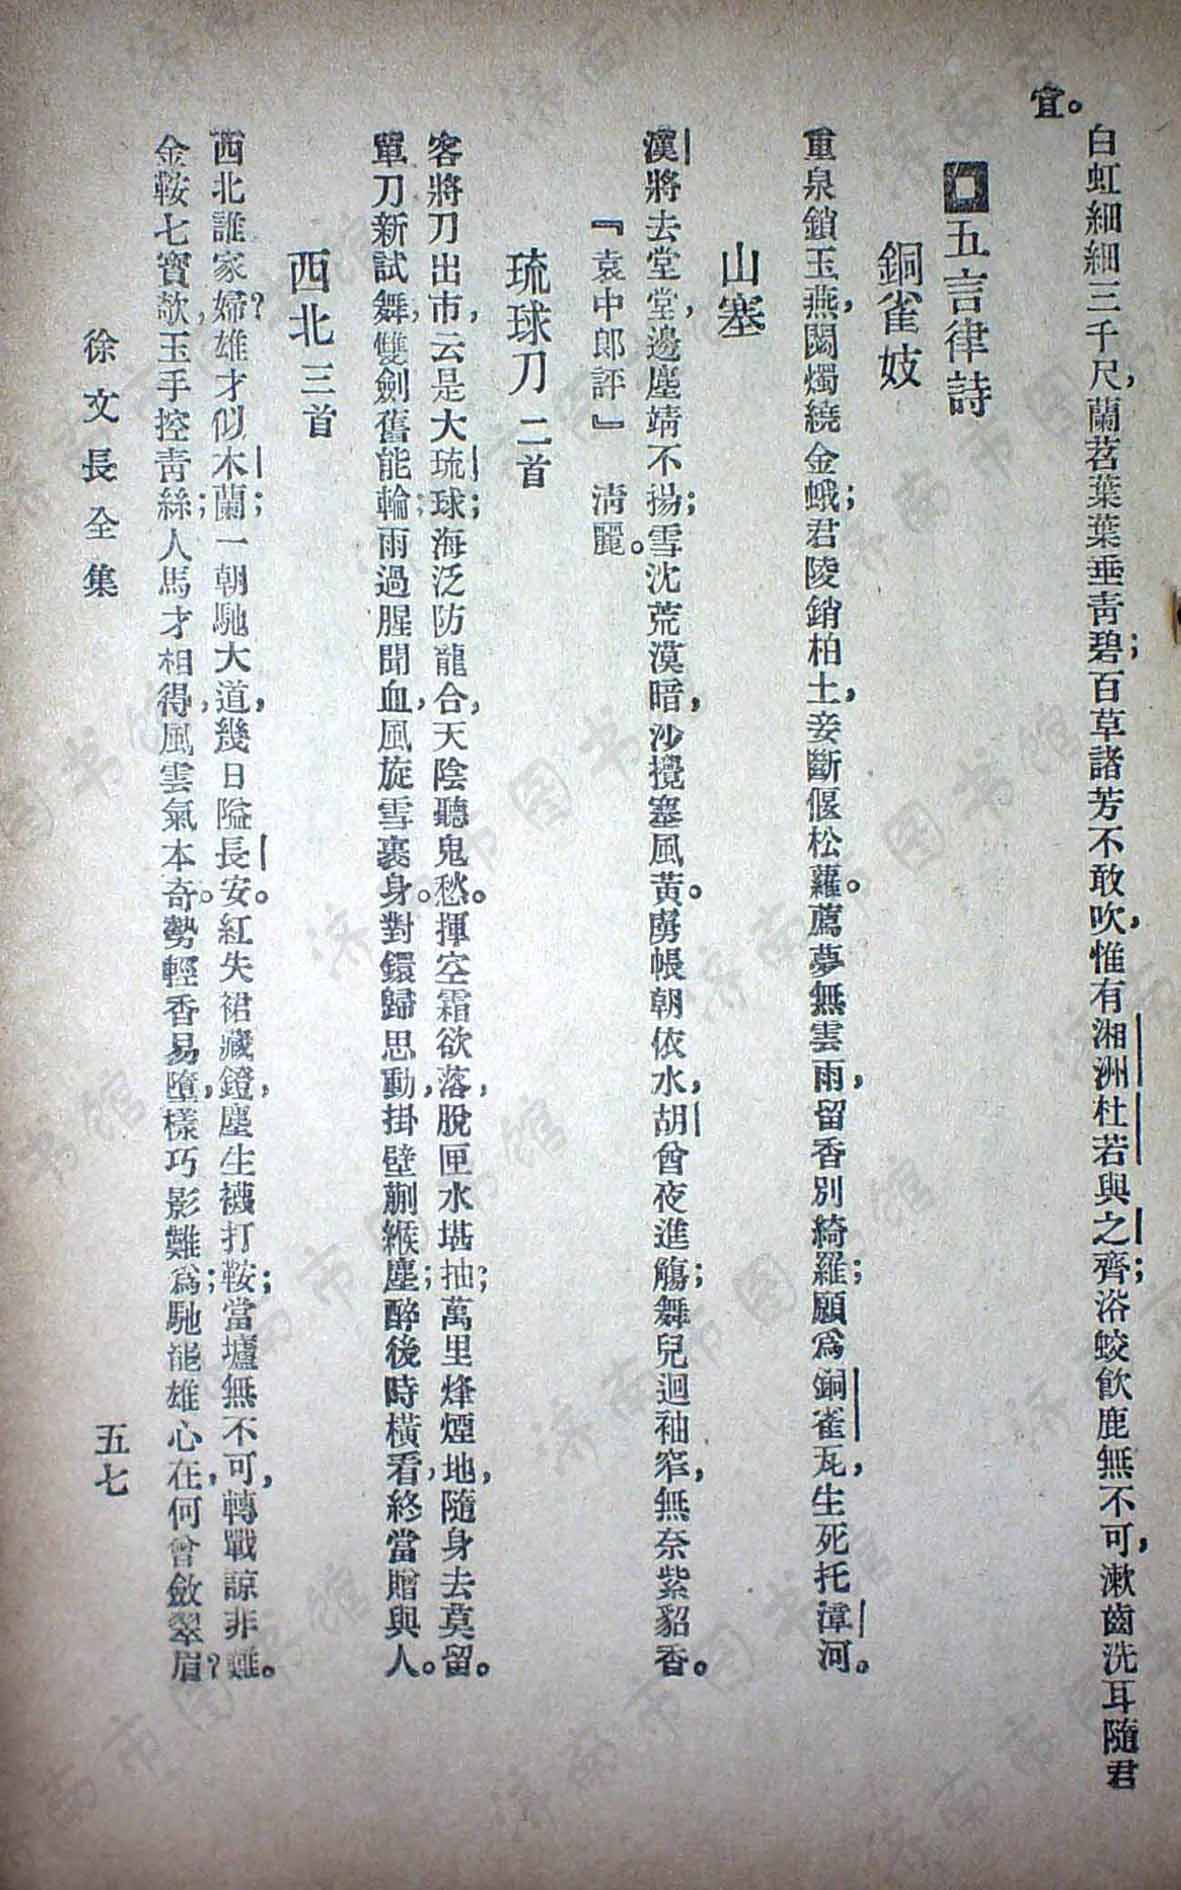 白虹細細三千尺，蘭苕葉葉垂靑碧；百草諸芳不敢吹，惟有湘洲杜若與之齊；浴蛟飮鹿無不可，漱齒洗耳隨君
宜。
五言律詩
銅雀妓
重泉鎖玉燕，閟燭繞金蛾；君陵銷柏土，妾斷偃松蘿。薦夢無雲雨，留香別綺羅；願爲銅雀瓦，生死托漳河。
山塞
漢將去堂堂，邊塵靖不揚；雪沈荒漠暗，沙攪塞風黃。虜帳朝依水，胡酋夜進觴；舞兒迴袖窄，無奈紫貂香。
『袁中郞評』 淸麗。
琉球刀 二首
客將刀出市，云是大琉球；海泛防龍合，天陰聽鬼愁。揮空霜欲落，脫匣水堪抽；萬里烽煙地，隨身去莫留。
單刀新試舞，雙劍舊能輪；雨過腥聞血，風旋雪裹身。對鐶歸思動，掛壁蒯緱塵；醉後時橫看，終當贈與人。
西北三首
西北誰家婦？雄才似木蘭；一朝馳大道，幾日隘長安。紅失裙藏鐙，塵生襪打鞍；當壚無不可，轉戰諒非難。
金鞍七寶欹，玉手控靑絲；人馬才相得，風雲氣本奇。勢輕香易墮，樣巧影難爲；馳能雄心在，何曾斂翠眉？
徐文長全集
五七